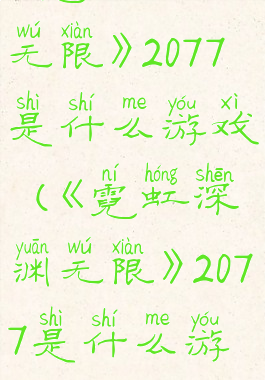 wú xiàn
无限》2077
shì shí me yóu xì
是什么游戏
ní hóng shēn
(《霓虹深
yuān wú xiàn
渊无限》207
shì shí me yóu
7是什么游